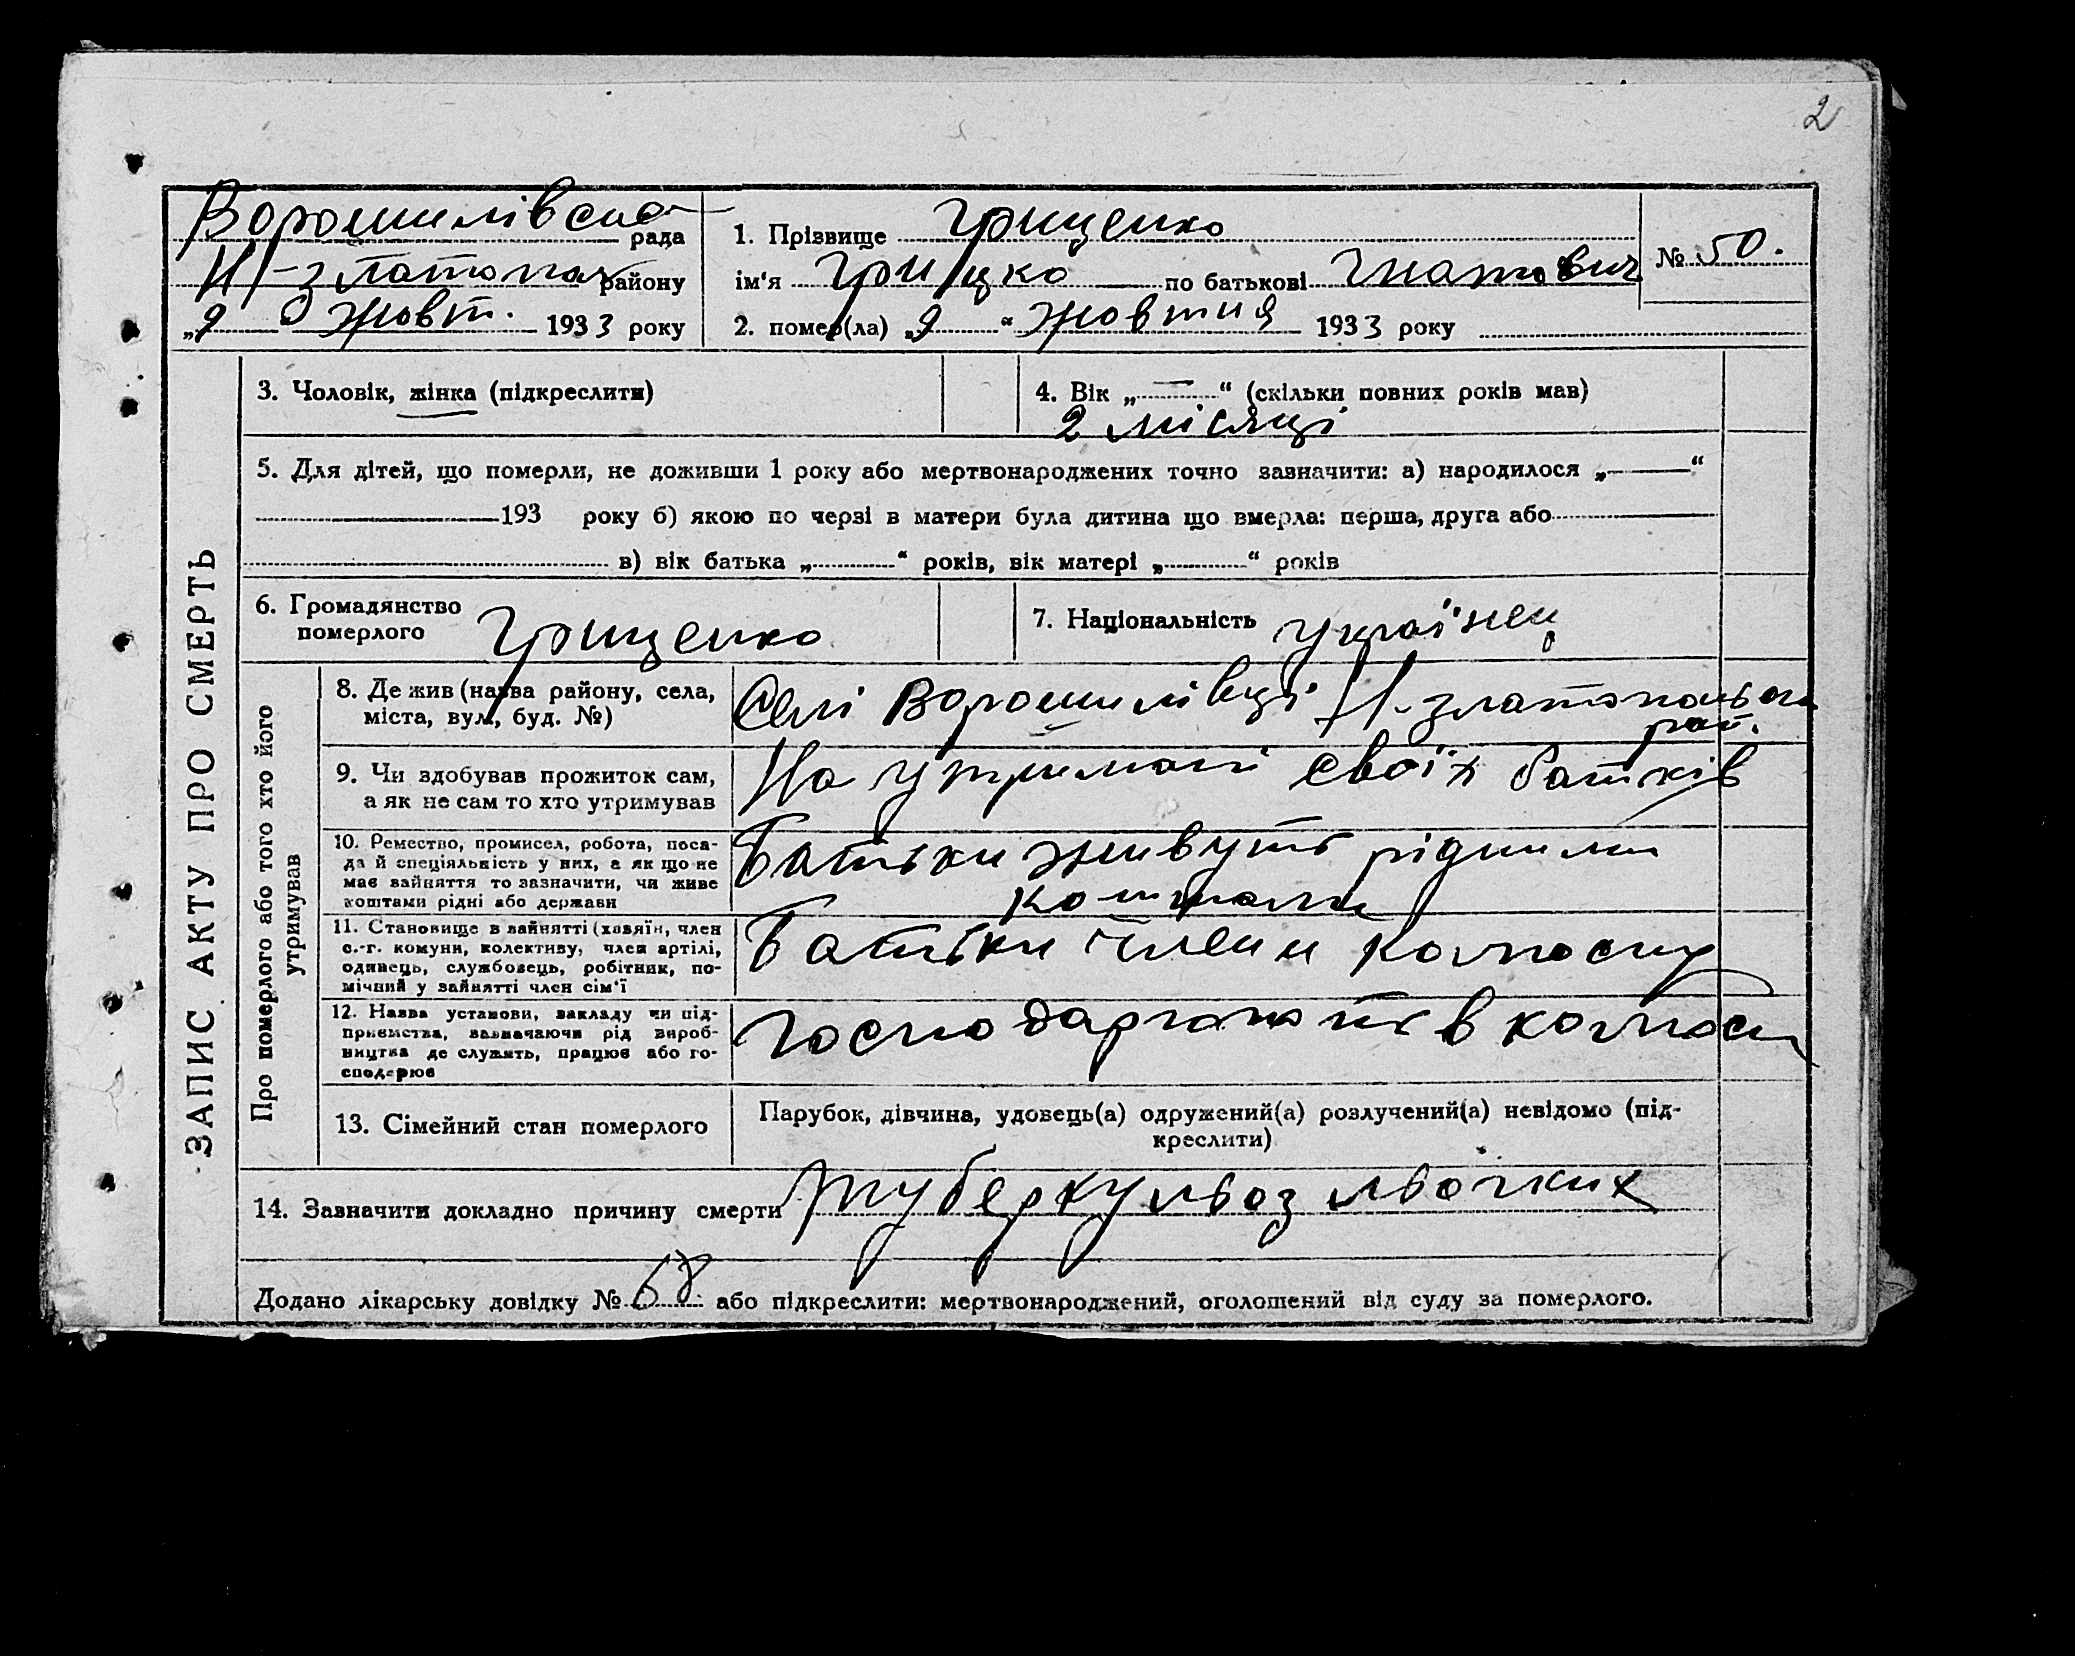 2
Ворошилівська рада
Н-златопол району
„9 Жовт. 1933 року
1. Прізвище Грищенко
ім'я Грицко по батькові Гнатович
№ 50.
2. помер(ла) „9“ жовтня 1933 року
ЗАПИС АКТУ ПРО СМЕРТЬ
3. Чоловік, жінка (підкреслити)
4. Вік „—“ (скільки повних років мав)
2 місяці
5. Для дітей, що померли, не доживши 1 року або мертвонароджених точно зазначити: а) народилося „—“
193 року б) якою по черзі в матери була дитина що вмерла: перша, друга або
в) вік батька „ “ років, вік матері „ “ років
6. Громадянство
померлого Грищенко
7. Національність Українец
Про померлого або того хто його
утримував
8. Де жив (назва району, села,
міста, вул., буд. №)
Селі Ворошилівці Н-златопольськ
рай.
9. Чи здобував прожиток сам,
а як не сам то хто утримував
На утримані своїх батків
10. Ремество, промисел, робота, поса-
да й спеціяльність у них, а як що не
має зайняття то зазначити, чи живе
коштами рідні або держави
Батьки живуть рідними
коштами
11. Становище в зайнятті (хазяїн, член
с.-г. комуни, колективу, член артілі,
одинець, службовець, робітник, по-
мічний у зайнятті член сім'ї
Батьки члени колгоспу
12. Назва установи, закладу чи під-
приємства, зазначаючи рід вироб-
ництва де служить, працює або го-
сподерює
Господарюють в колгоспі
13. Сімейний стан померлого
Парубок, дівчина, удовець(а) одружений(а) розлучений(а) невідомо (під-
креслити)
14. Зазначити докладно причину смерти Туберкульоз льогких
Додано лікарську довідку № 68 або підкреслити: мертвонароджений, оголошений від суду за померлого.